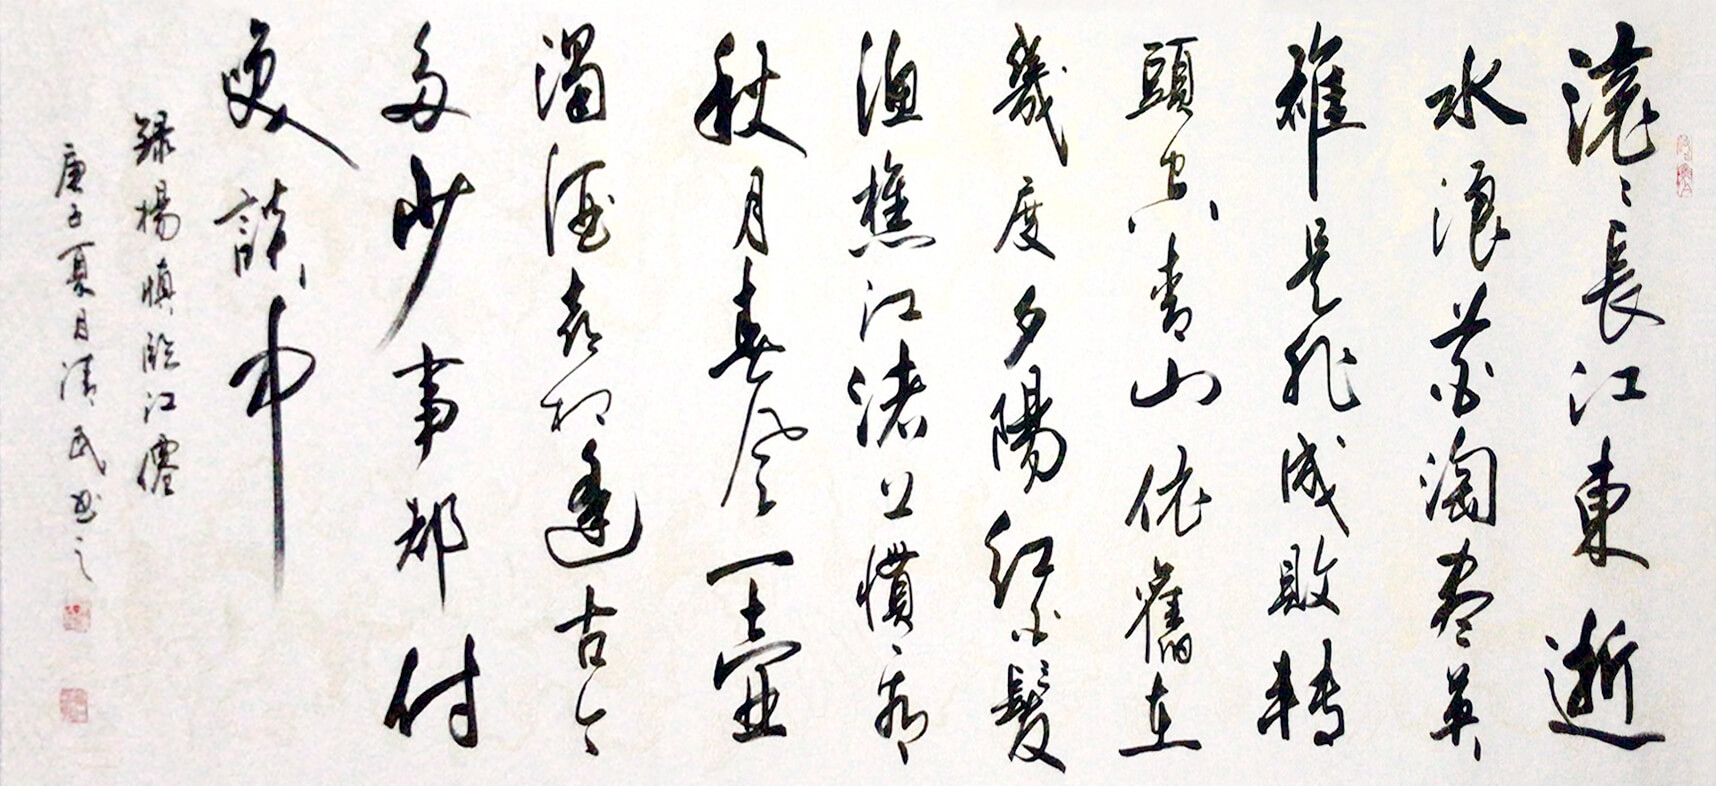 滾滾長江東逝
水浪花淘盡英
雄是非成敗轉
頭空青山依舊在
幾度夕陽紅白髮
漁樵江渚上慣看
秋月春風一壺
濁酒喜相逢古今
多少事都付
笑談中
録楊慎臨江僊
庚子夏月清民书之